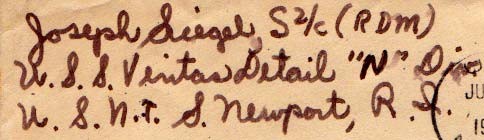 Joseph Siegel, S2/c (RDM)
U.S.S. Veritas Detail "N" Di
U.S.N.T.S. Newport, R.I.
JU
19